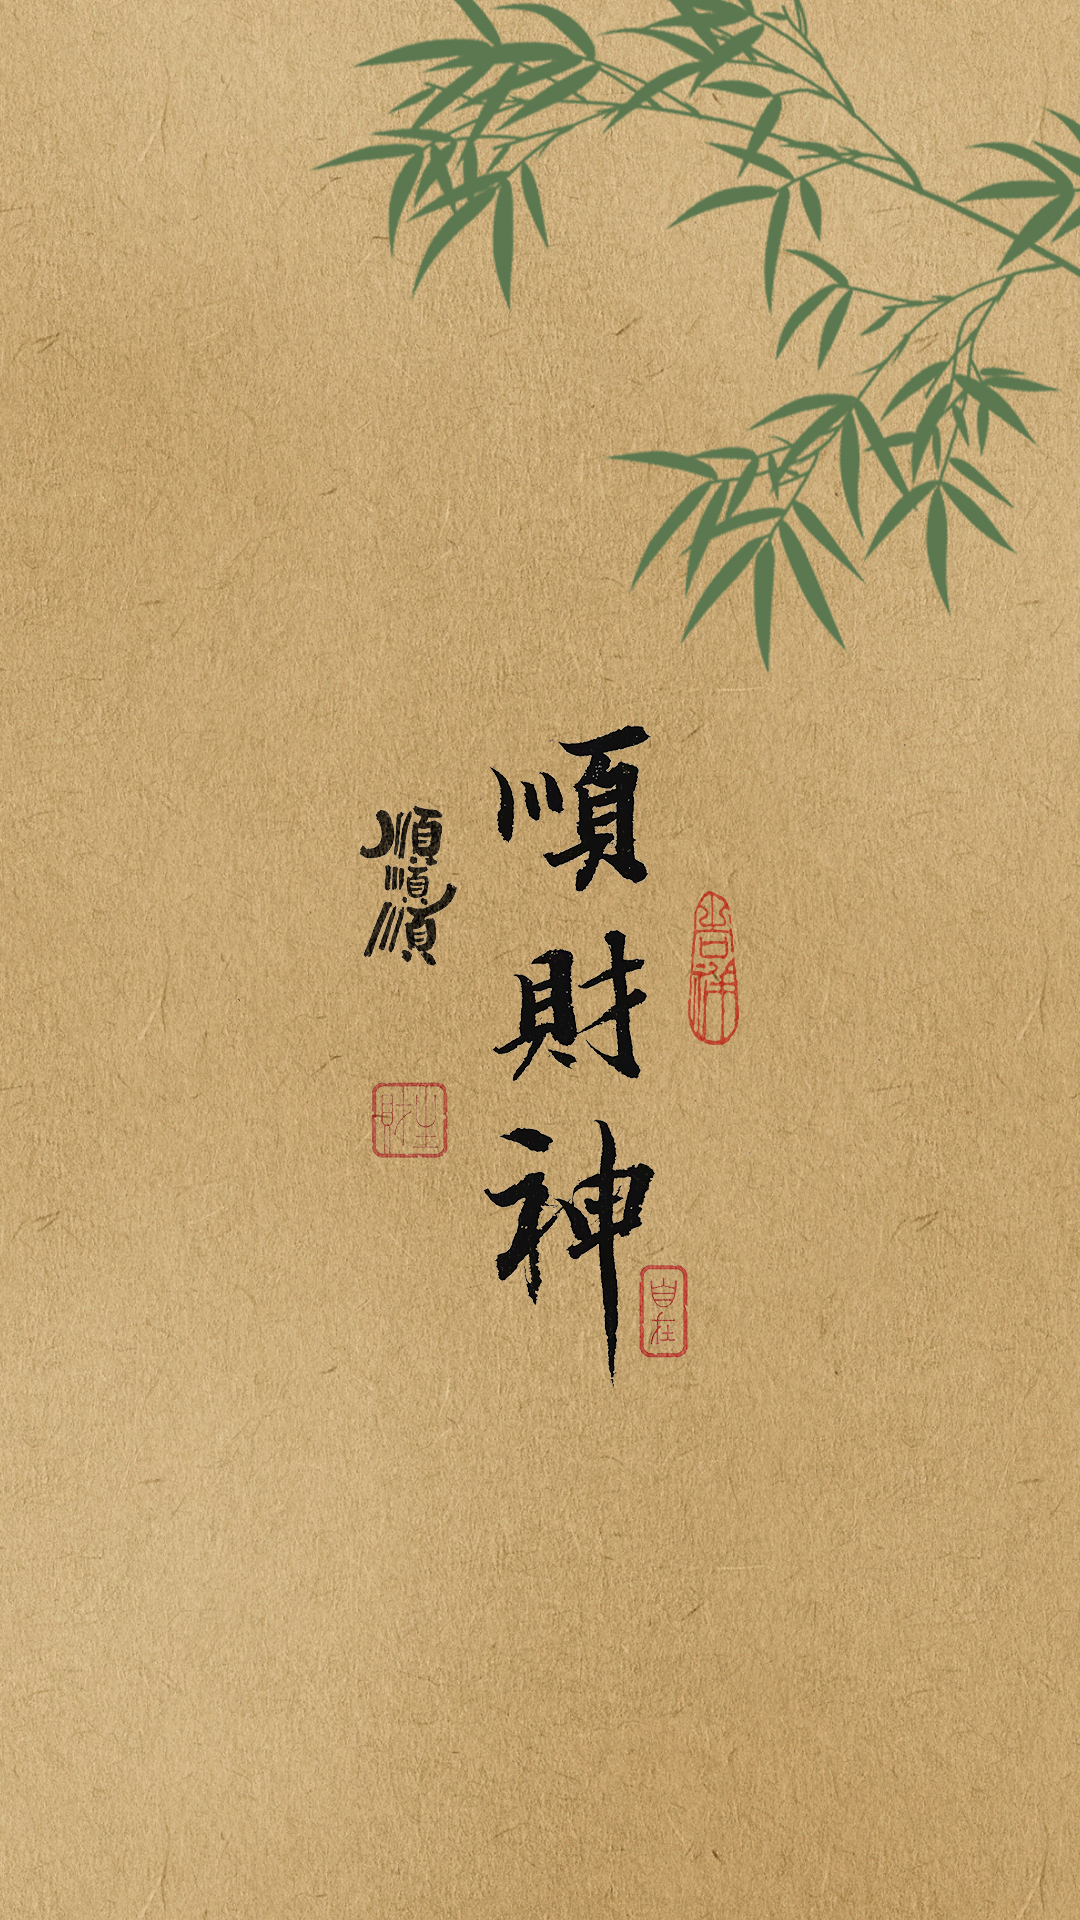 順財神
順順順
吉祥
自在
生財